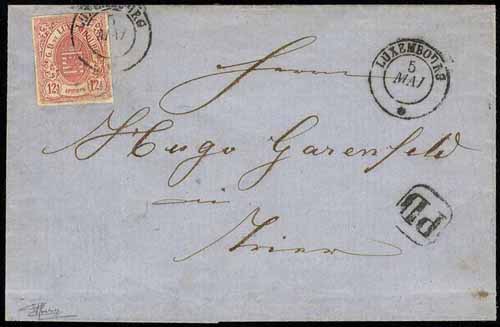 LUXEMBOURG
MAI
12½ 12½
LUXEMBOURG
5
MAI
Herrn
Hugo Garenfeld
in
Trier
PD